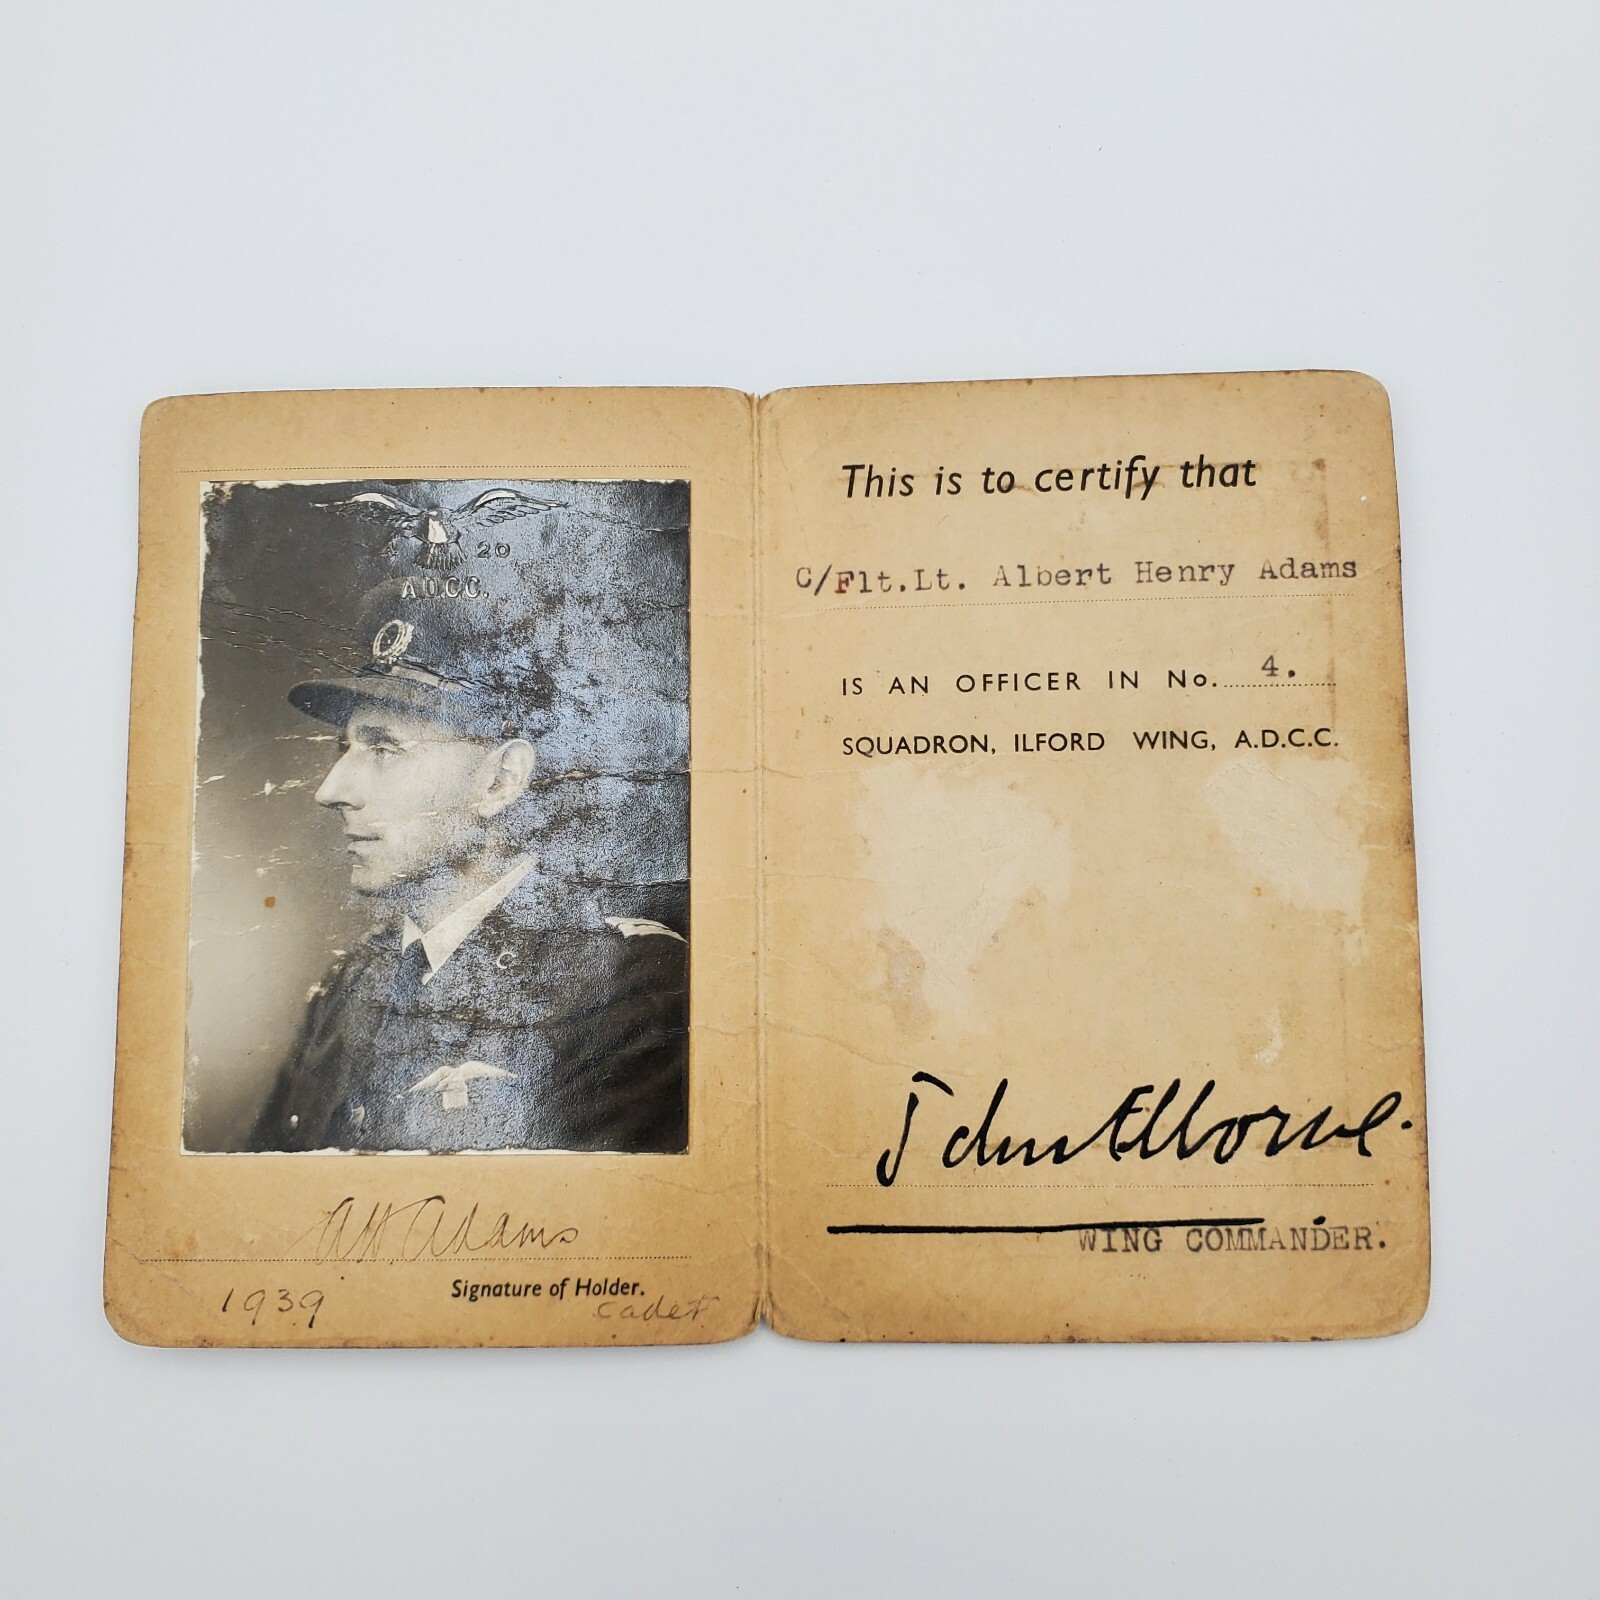 4 20
A.D.C.C.
C
AH Adams
Signature of Holder.
1939
cadet
This is to certify that
C/Flt.Lt. Albert Henry Adams
IS AN OFFICER IN No. 4.
SQUADRON, ILFORD WING, A.D.C.C.
WING COMMANDER.